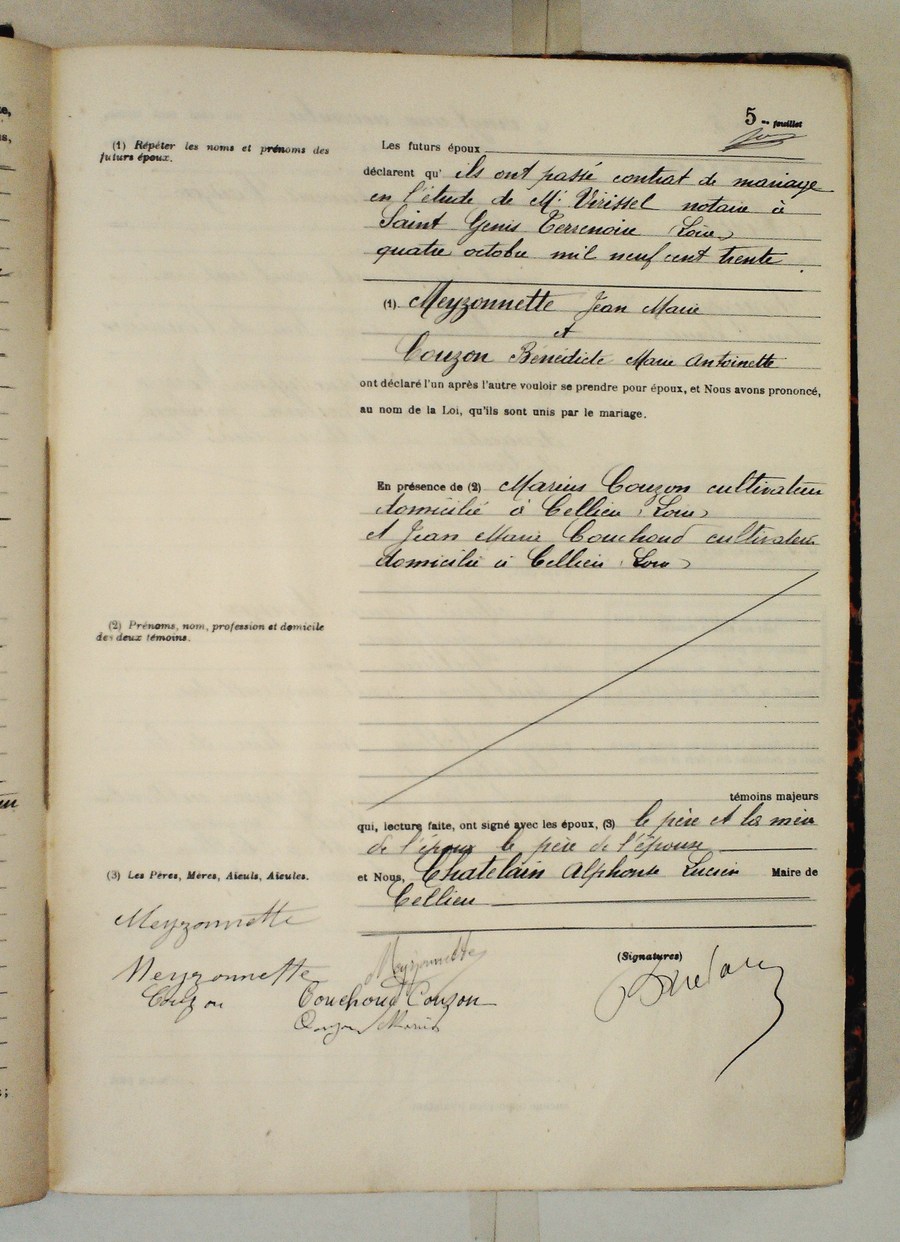 5me feuillet
(1) Répéter les noms et prénoms des
futurs époux.
Les futurs époux
déclarent qu' ils ont passé contrat de mariage
en l'étude de Me Virissel notaire à
Saint Genis Terrenoire (Loire)
quatre octobre mil neuf cent trente
(1) Meyzonnette Jean Marie
et
Couzon Bénédicte Marie Antoinette
ont déclaré l'un après l'autre vouloir se prendre pour époux, et Nous avons prononcé,
au nom de la Loi, qu'ils sont unis par le mariage.
En présence de (2) Marius Couzon cultivateur
domicilié à Cellieu (Loire)
et Jean Marie Couchoud cultivateur
domicilié à Cellieu (Loire)
(2) Prénoms, nom, profession et domicile
des deux témoins.
témoins majeurs
qui, lecture faite, ont signé avec les époux, (3) le père et la mère
de l'époux le père de l'épouse
(3) Les Pères, Mères, Aïeuls, Aïeules.
et Nous, Chatelain Alphonse Lucien Maire de
Cellieu
Meyzonnette
(Signatures)
Meyzonnette
Meyzonnette
Couzon
Couchoud Couzon
Couzon Marius